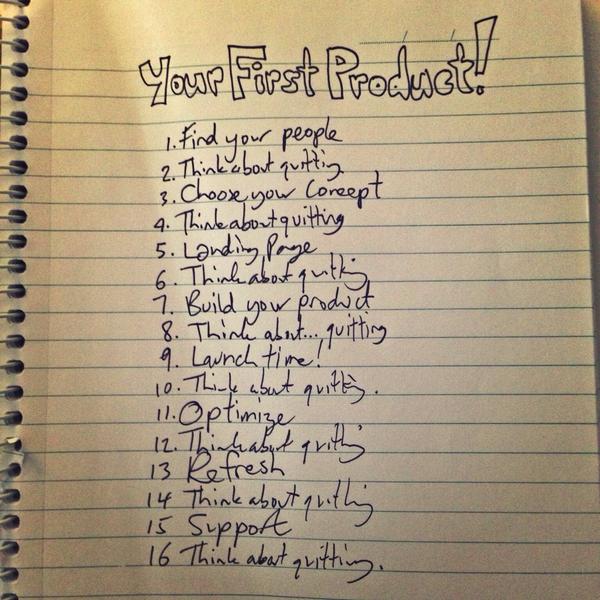 Your First Product!
1. Find your people
2. Think about quitting
3. Choose your concept
4. Think about quitting
5. Landing Page
6. Think about quitting
7. Build your product
8. Think about... quitting
9. Launch time!
10. Think about quitting.
11. Optimize
12. Think about quitting
13 Refresh
14 Think about quitting
15 Support
16 Think about quitting.